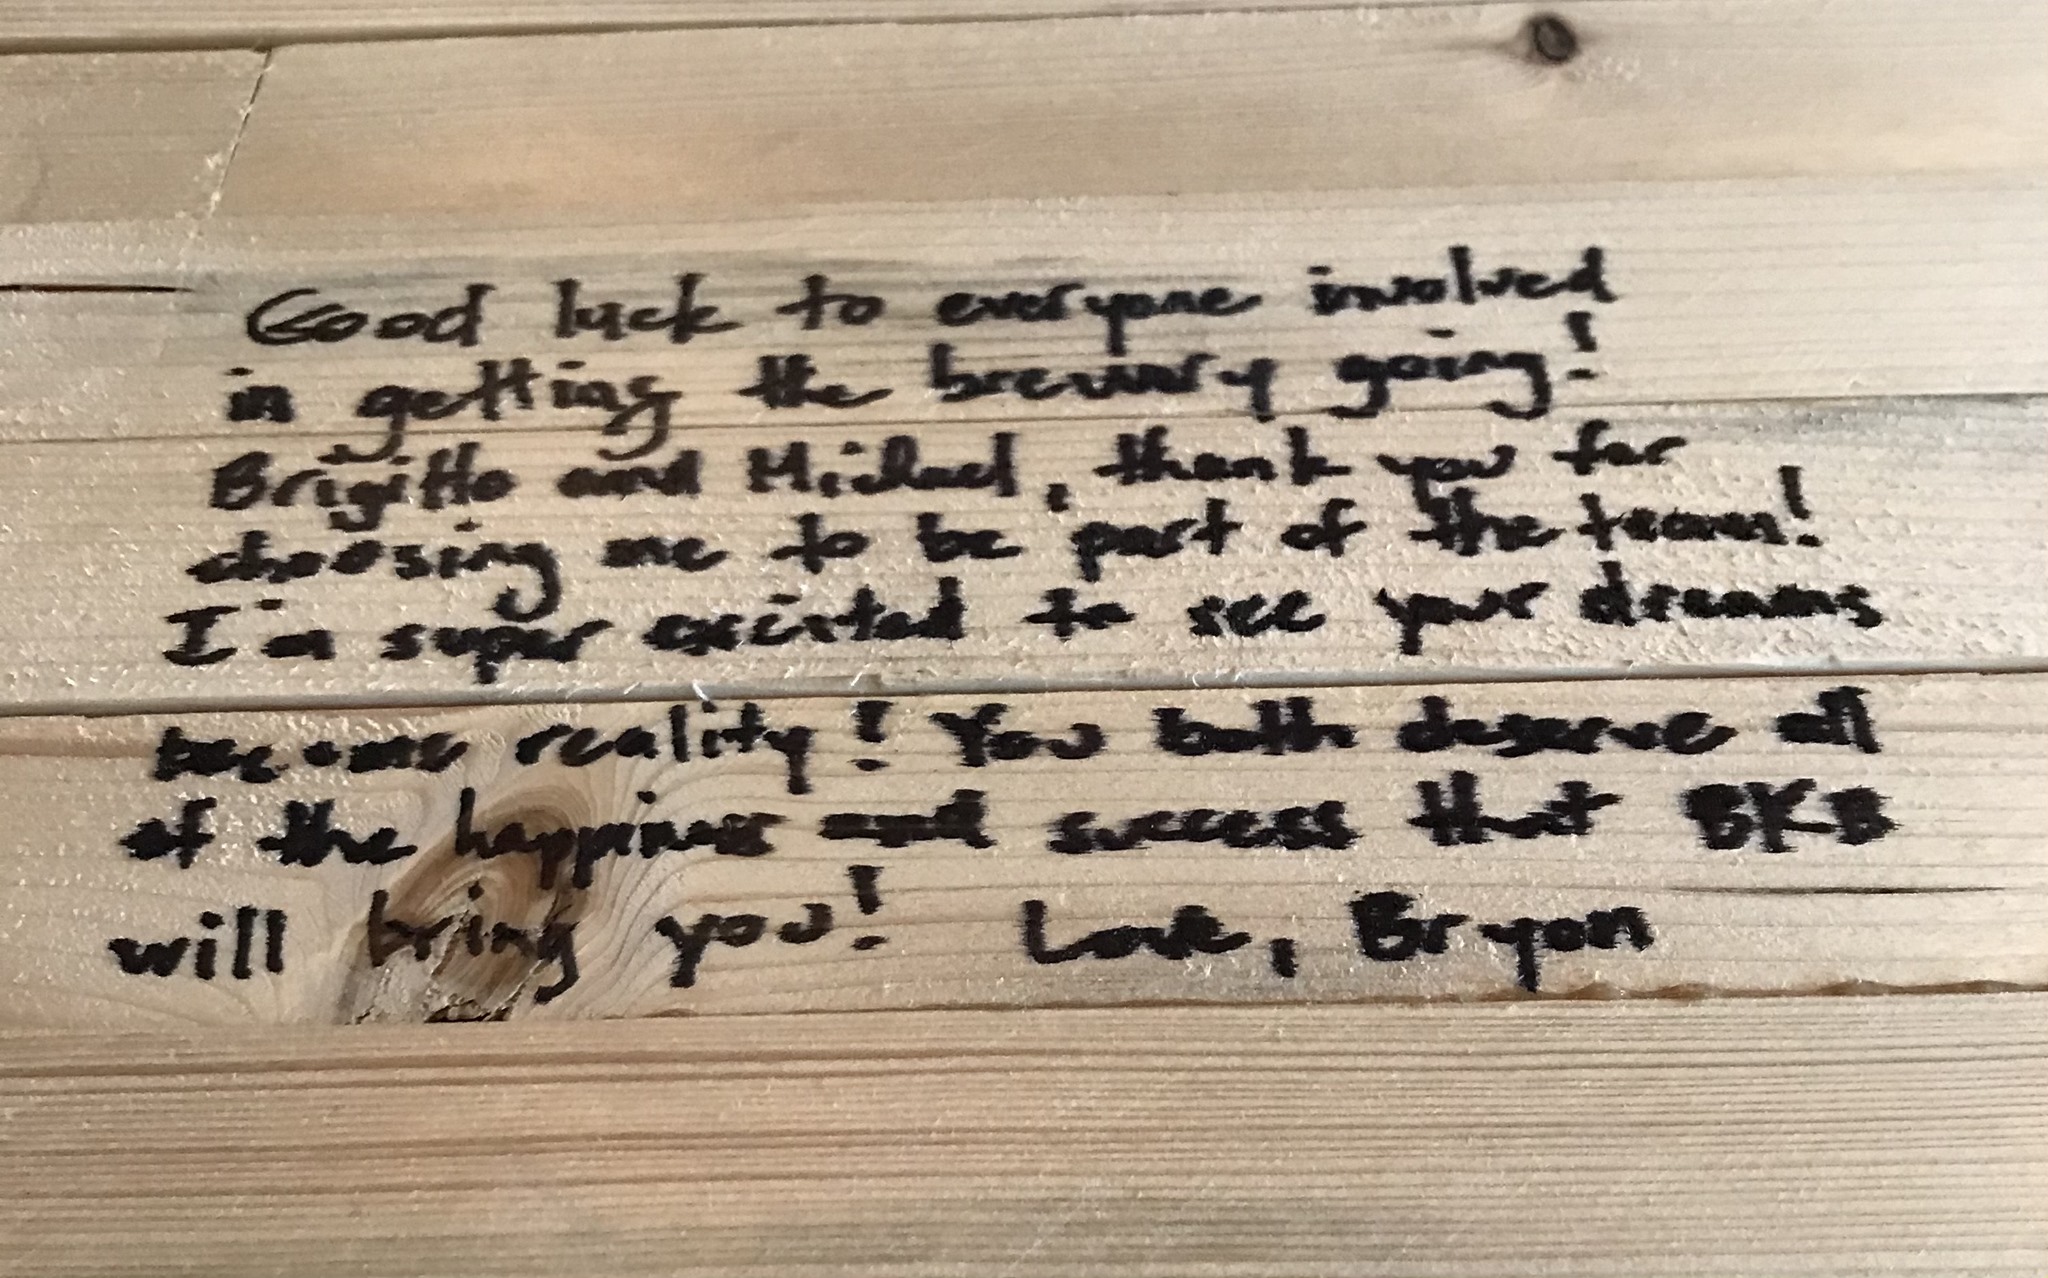 Good luck to everyone involved
in getting the brewery going!
Brigitte and Michael, thank you for
choosing me to be part of the team!
I'm super excited to see your dreams
become reality! You both deserve all
of the happiness and success that BKB
will bring you! Love, Bryon